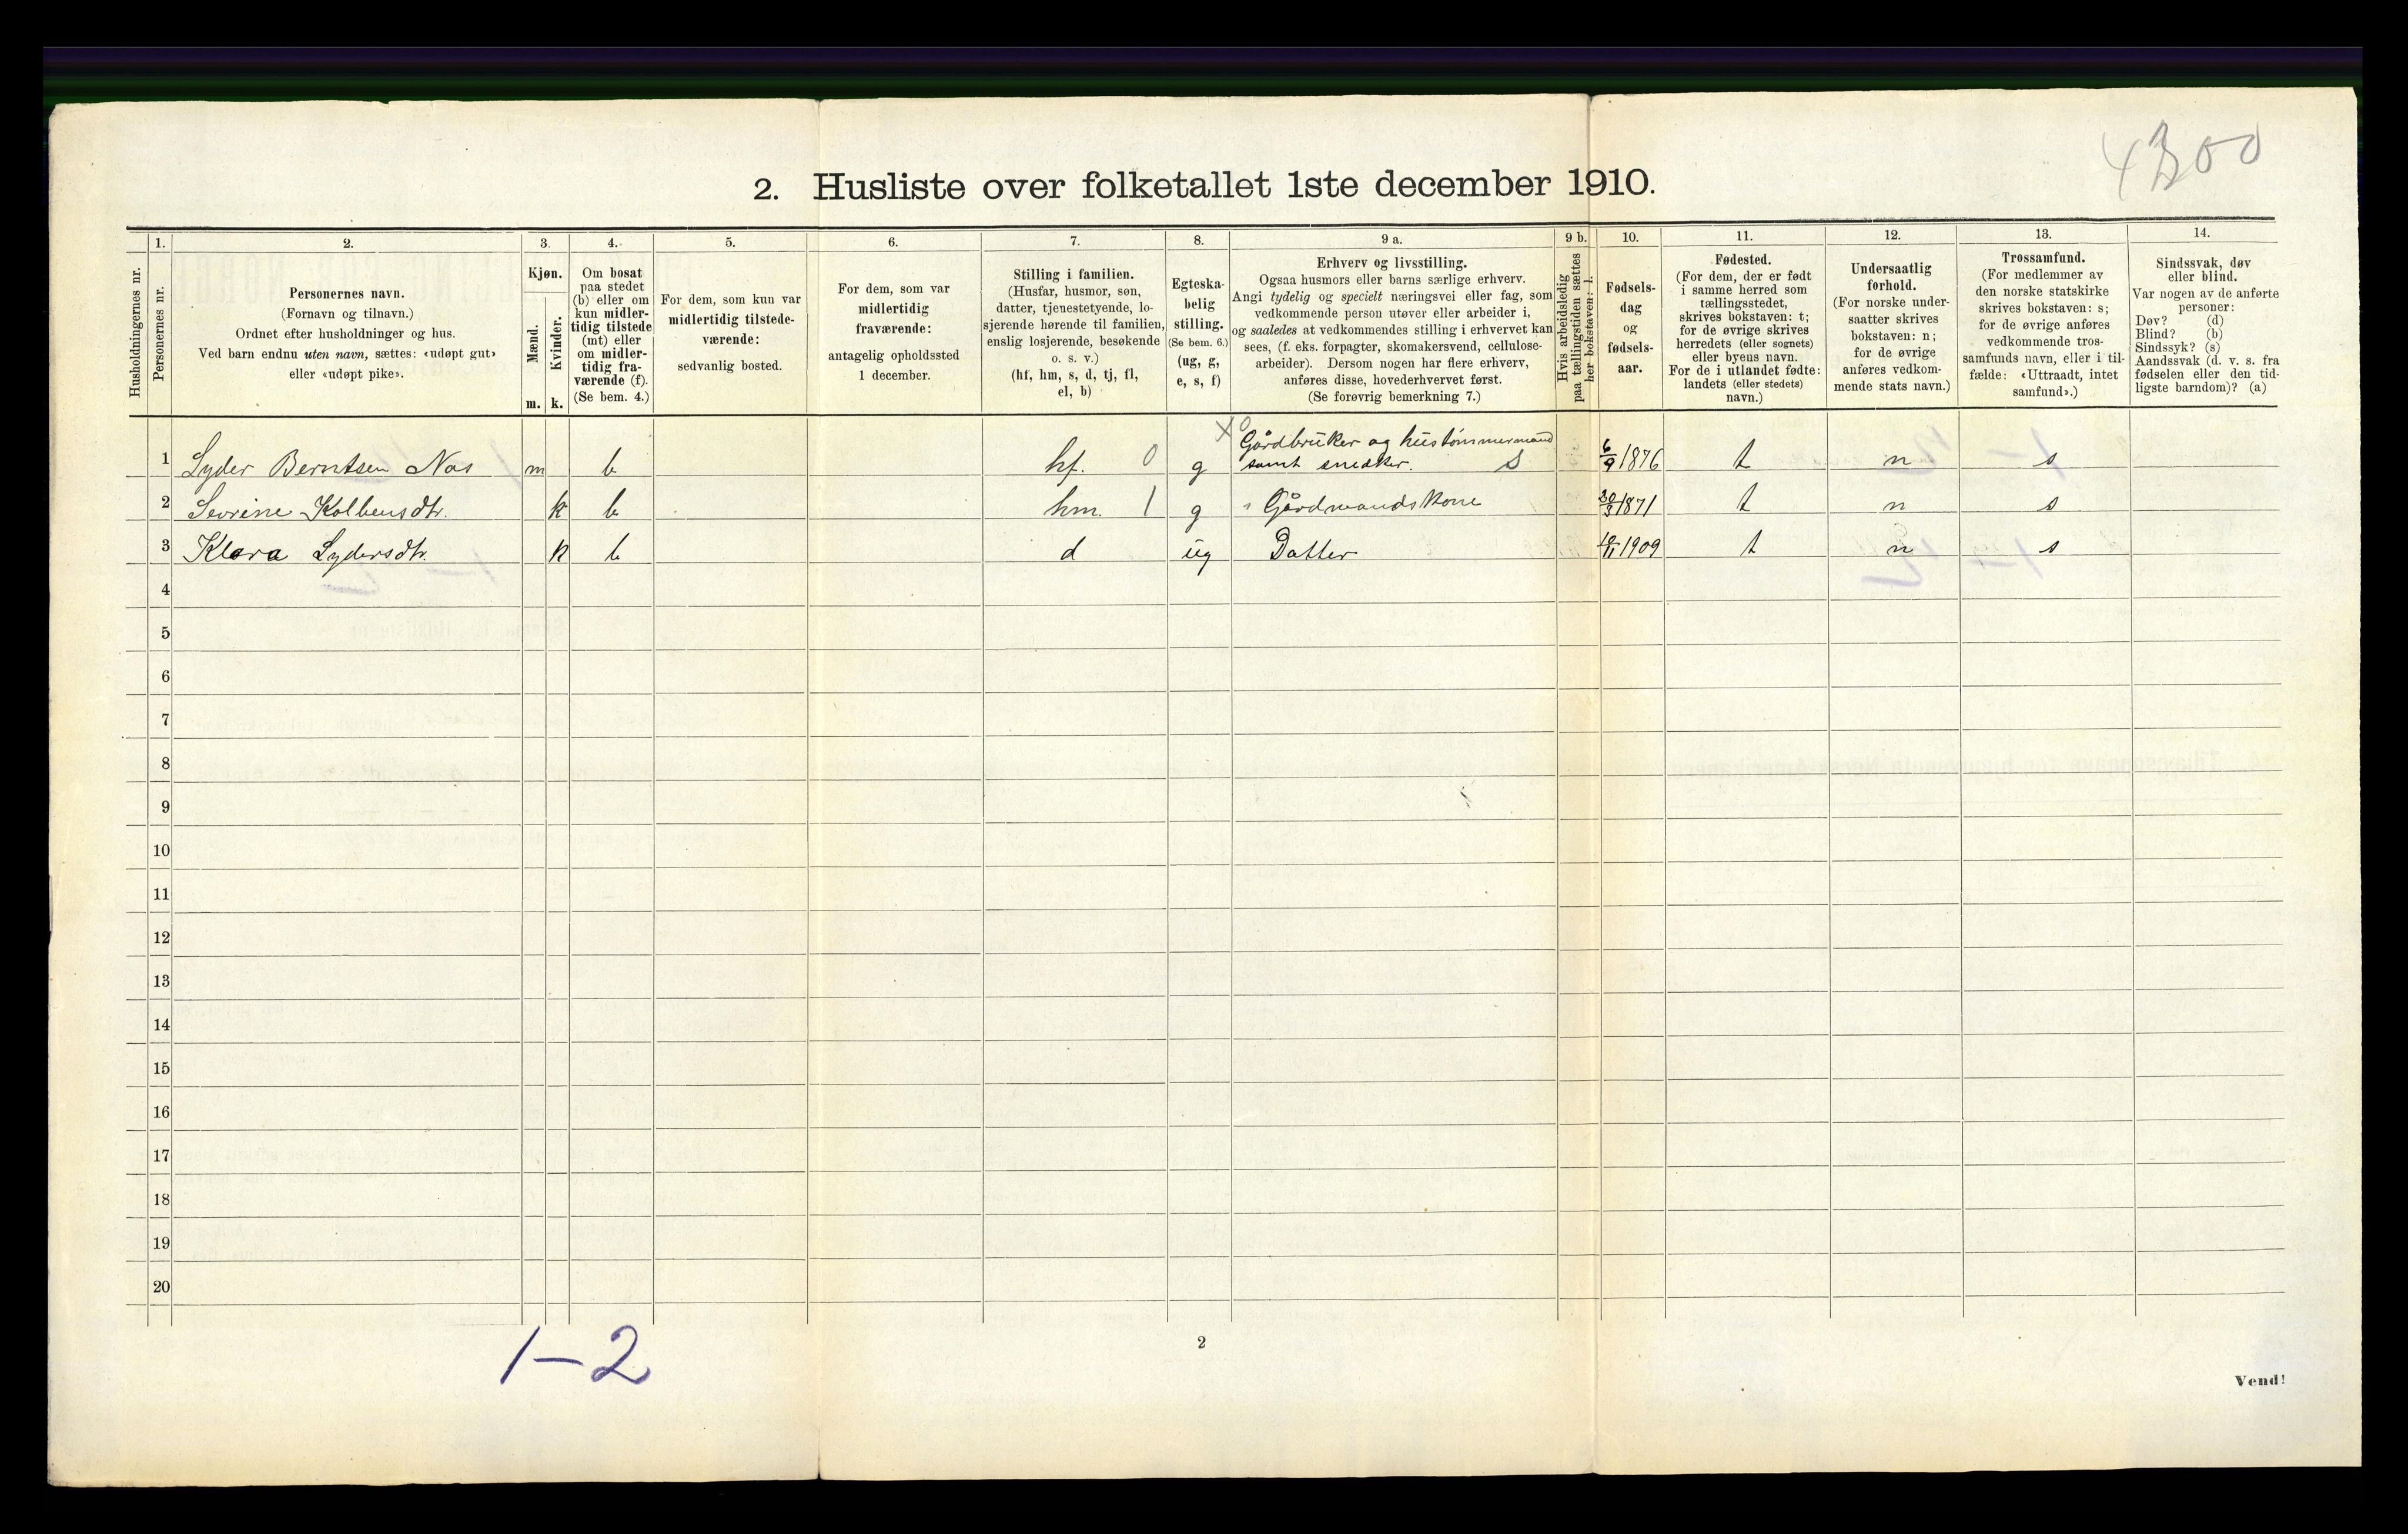 4300
2. Husliste over folketallet 1ste december 1910.
Husholdningernes nr.
1.
Personernes nr.
2.
Personernes navn.
(Fornavn og tilnavn.)
Ordnet efter husholdninger og hus.
Ved barn endnu uten navn, sættes: «udøpt gut»
eller «udøpt pike».
3.
Kjøn.
Mænd.
Kvinder.
m. k.
4.
Om bosat
paa stedet
(b) eller om
kun midler-
tidig tilstede
(mt) eller
om midler-
tidig fra-
værende (f).
(Se bem. 4.)
5.
For dem, som kun var
midlertidig tilstede-
værende:
sedvanlig bosted.
6.
For dem, som var
midlertidig
fraværende:
antagelig opholdssted
1 december.
7.
Stilling i familien.
(Husfar, husmor, søn,
datter, tjenestetyende, lo-
sjerende hørende til familien,
enslig losjerende, besøkende
o. s. v.)
(hf, hm, s, d, tj, fl,
el, b)
8.
Egteska-
belig
stilling.
(Se bem. 6.)
(ug, g,
e, s, f)
9 a.
Erhverv og livsstilling.
Ogsaa husmors eller barns særlige erhverv.
Angi tydelig og specielt næringsvei eller fag, som
vedkommende person utøver eller arbeider i,
og saaledes at vedkommendes stilling i erhvervet kan
sees, (f. eks. forpagter, skomakersvend, cellulose-
arbeider). Dersom nogen har flere erhverv,
anføres disse, hovederhvervet først.
(Se forøvrig bemerkning 7.)
9 b.
Hvis arbeidsledig
paa tællingstiden sættes
her bokstaven: l.
10.
Fødsels-
dag
og
fødsels-
aar.
11.
Fødested.
(For dem, der er født
i samme herred som
tællingsstedet,
skrives bokstaven: t;
for de øvrige skrives
herredets (eller sognets)
eller byens navn.
For de i utlandet fødte:
landets (eller stedets)
navn.)
12.
Undersaatlig
forhold.
(For norske under-
saatter skrives
bokstaven: n;
for de øvrige
anføres vedkom-
mende stats navn.)
13.
Trossamfund.
(For medlemmer av
den norske statskirke
skrives bokstaven: s;
for de øvrige anføres
vedkommende tros-
samfunds navn, eller i til-
fælde: «Uttraadt, intet
samfund».)
14.
Sindssvak, døv
eller blind.
Var nogen av de anførte
personer:
Døv? (d)
Blind? (b)
Sindssyk? (s)
Aandssvak (d. v. s. fra
fødselen eller den tid-
ligste barndom)? (a)
1 Lyder Berntsen Nos m b hf. 0 g x 0 Gårdbruker og hustømmermand
samt snedker. S 6/9 1876 t n s
2 Sevrine Kolbensdtr. k b hm. 1 g " Gårdmandskone 20/3 1871 t n s
3 Klara Lydersdtr. k b d ug Datter 10/11 1909 t n s
4
5
6
7
8
9
10
11
12
13
14
15
16
17
18
19
20
1-2
2
Vend!